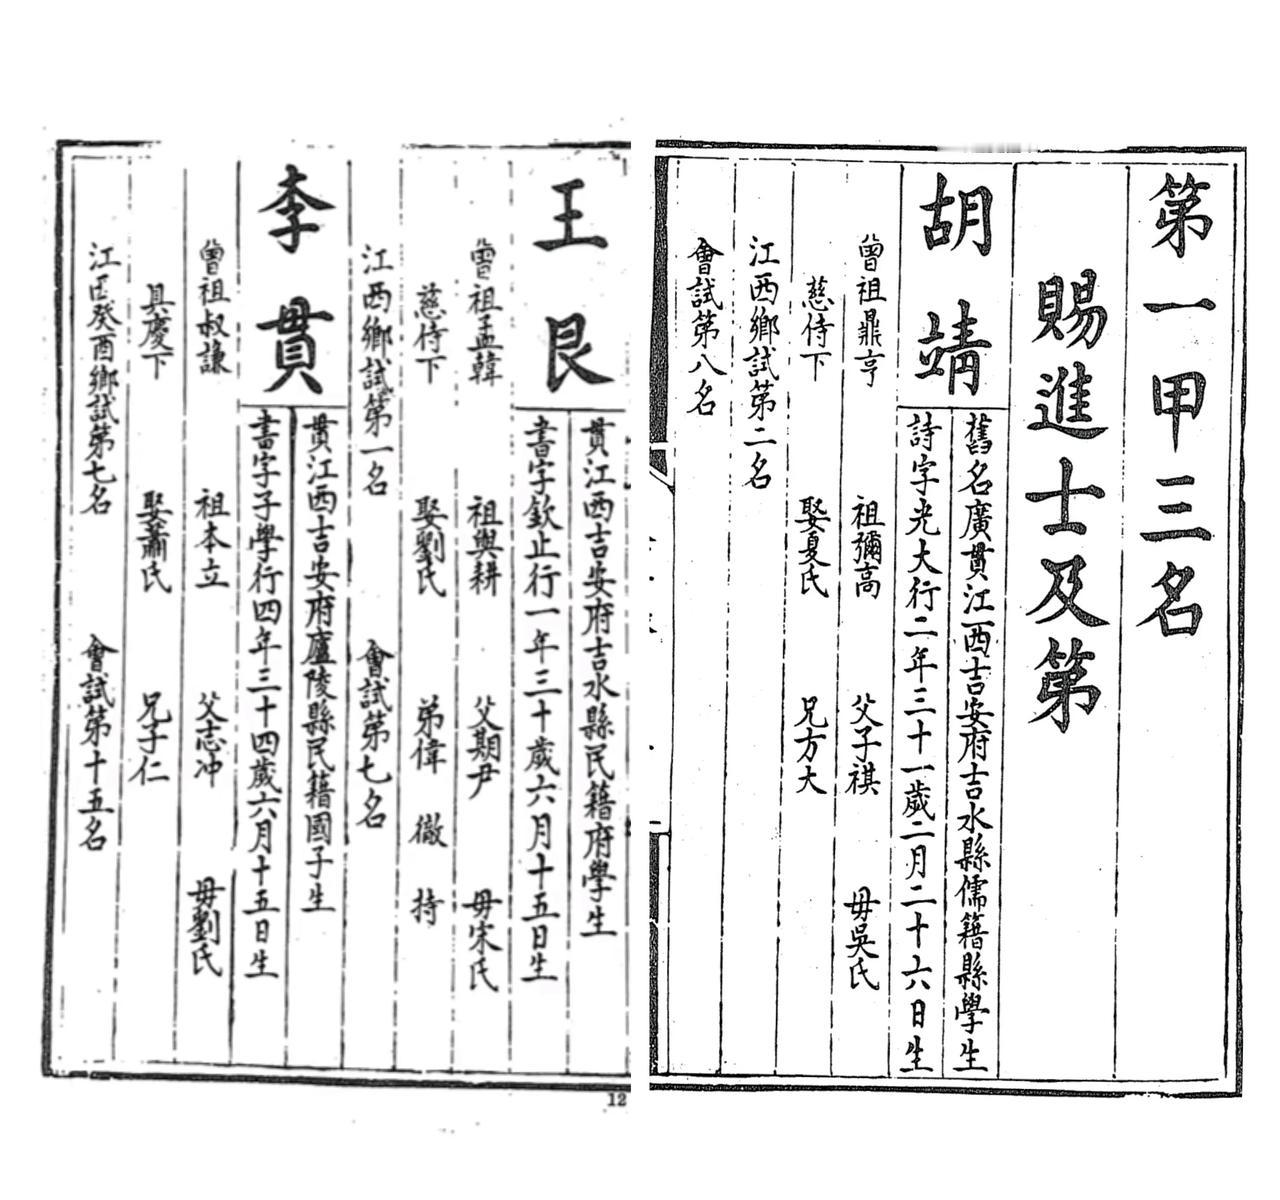 第一甲三名
賜進士及第
胡靖
舊名廣貫江西吉安府吉水縣儒籍縣學生
詩字光大行二年三十一歲二月二十六日生
曾祖鼎亨 祖彌高 父子祺 毋吳氏
慈侍下 娶夏氏 兄方大
江西鄉試第二名
會試第八名
王艮
貫江西吉安府吉水縣民籍府學生
書字欽止行一年三十歲六月十五日生
曾祖孟韓 祖與耕 父期尹 毋宋氏
慈侍下 娶劉氏 弟偉 徽 持
江西鄉試第一名 會試第七名
李貫
貫江西吉安府廬陵縣民籍國子生
書字子學行四年三十四歲六月十五日生
曾祖叔謙 祖本立 父志冲 毋劉氏
具慶下 娶蕭氏 兄子仁
江西癸酉鄉試第七名 會試第十五名
12